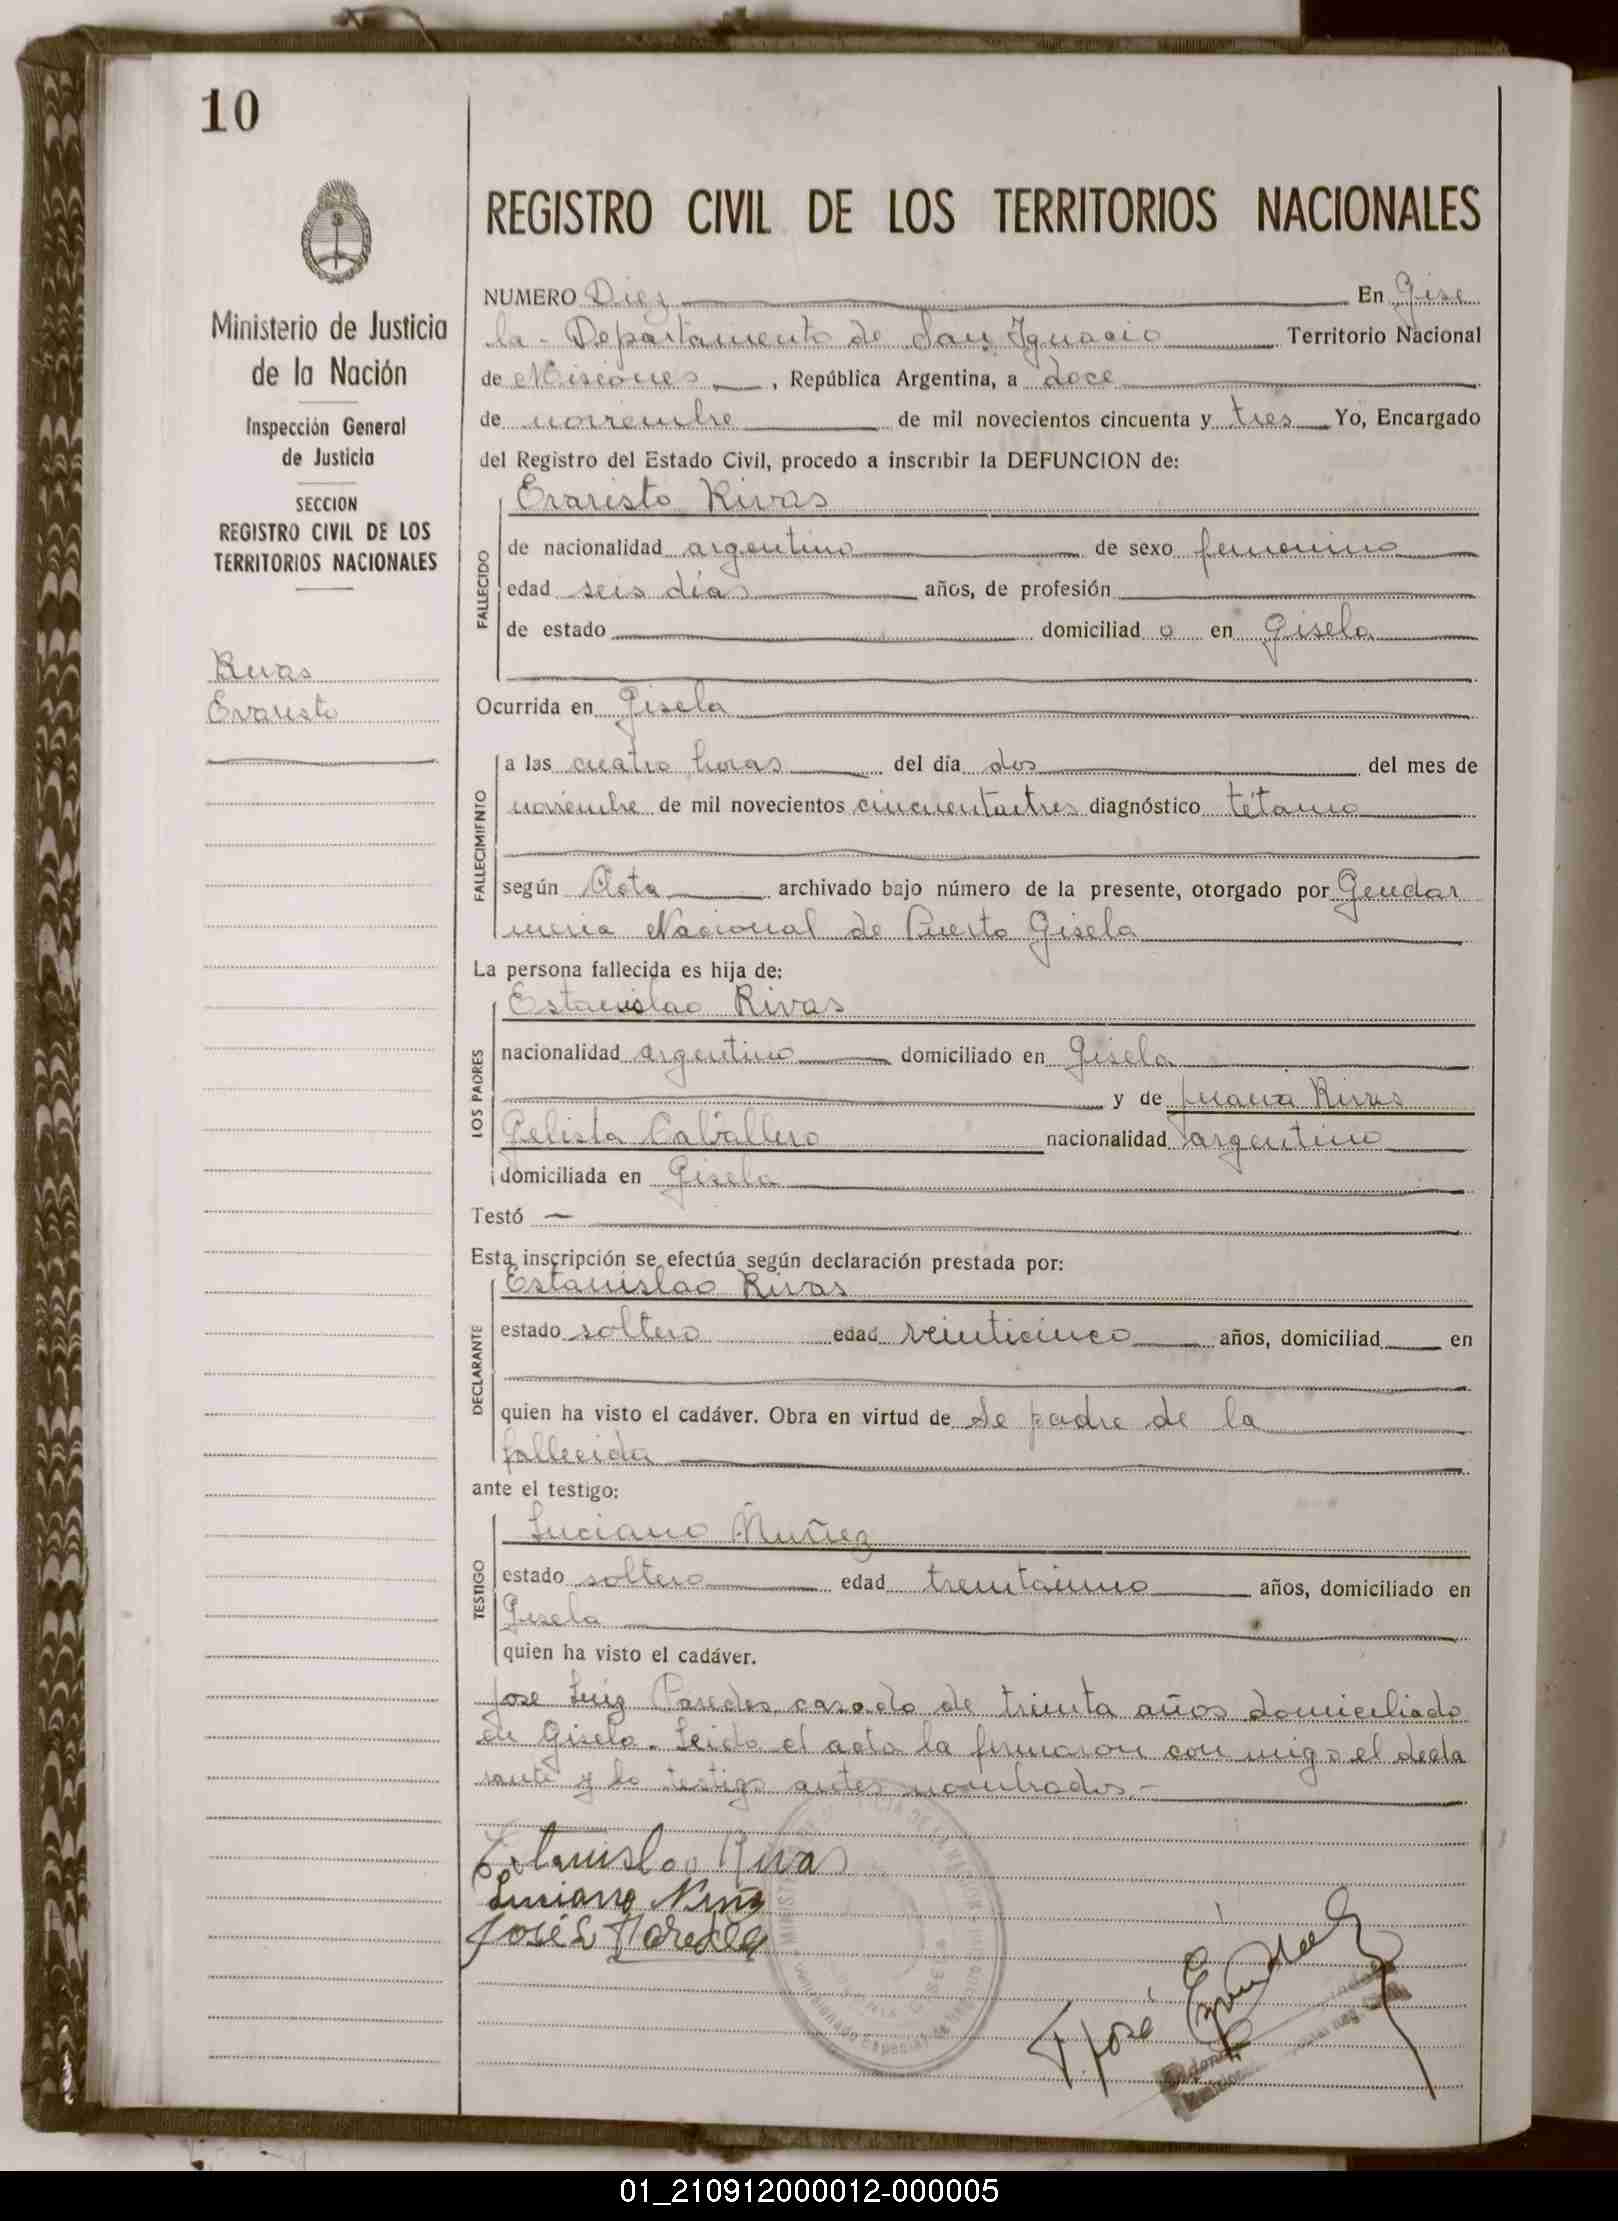 10
Ministerio de Justicia
de la Nación
Inspección General
de Justicia
SECCION
REGISTRO CIVIL DE LOS
TERRITORIOS NACIONALES
Rivas
Evaristo
REGISTRO CIVIL DE LOS TERRITORIOS NACIONALES
NUMERO Diez En Gise
la - Departamento de San Ignacio Territorio Nacional
de Misiones, República Argentina, a doce
de noviembre de mil novecientos cincuenta y tres Yo, Encargado
del Registro del Estado Civil, procedo a inscribir la DEFUNCION de:
Evaristo Rivas
FALLECIDO
de nacionalidad argentino de sexo femenino
edad seis días años, de profesión
de estado domiciliad o en Gisela
Ocurrida en Gisela
FALLECIMIENTO
a las cuatro horas del día dos del mes de
noviembre de mil novecientos cincuentaitres diagnóstico tétano
según Acta archivado bajo número de la presente, otorgado por Gendar
meria Nacional de Puerto Gisela
La persona fallecida es hija de:
LOS PADRES
Estanislao Rivas
nacionalidad argentino domiciliado en Gisela
y de Juana Rivas
Caballero nacionalidad argentino
domiciliada en Gisela
Testó —
Esta inscripción se efectúa según declaración prestada por:
DECLARANTE
Estanislao Rivas
estado soltero edad veinticinco años, domiciliad en
quien ha visto el cadáver. Obra en virtud de Se padre de la
fallecida
ante el testigo:
TESTIGO
Luciano Nuñez
estado soltero edad treintaiuno años, domiciliado en
Gisela
quien ha visto el cadáver.
Jose Luiz Paredes casado de trienta años domiciliado
en Gisela. Leida el acta la firmaron con migo el decla
rante y lo testigo antes nombrados.-
Estanislao Rivas
Luciano
José L Paredes
T. José
01_210912000012-000005